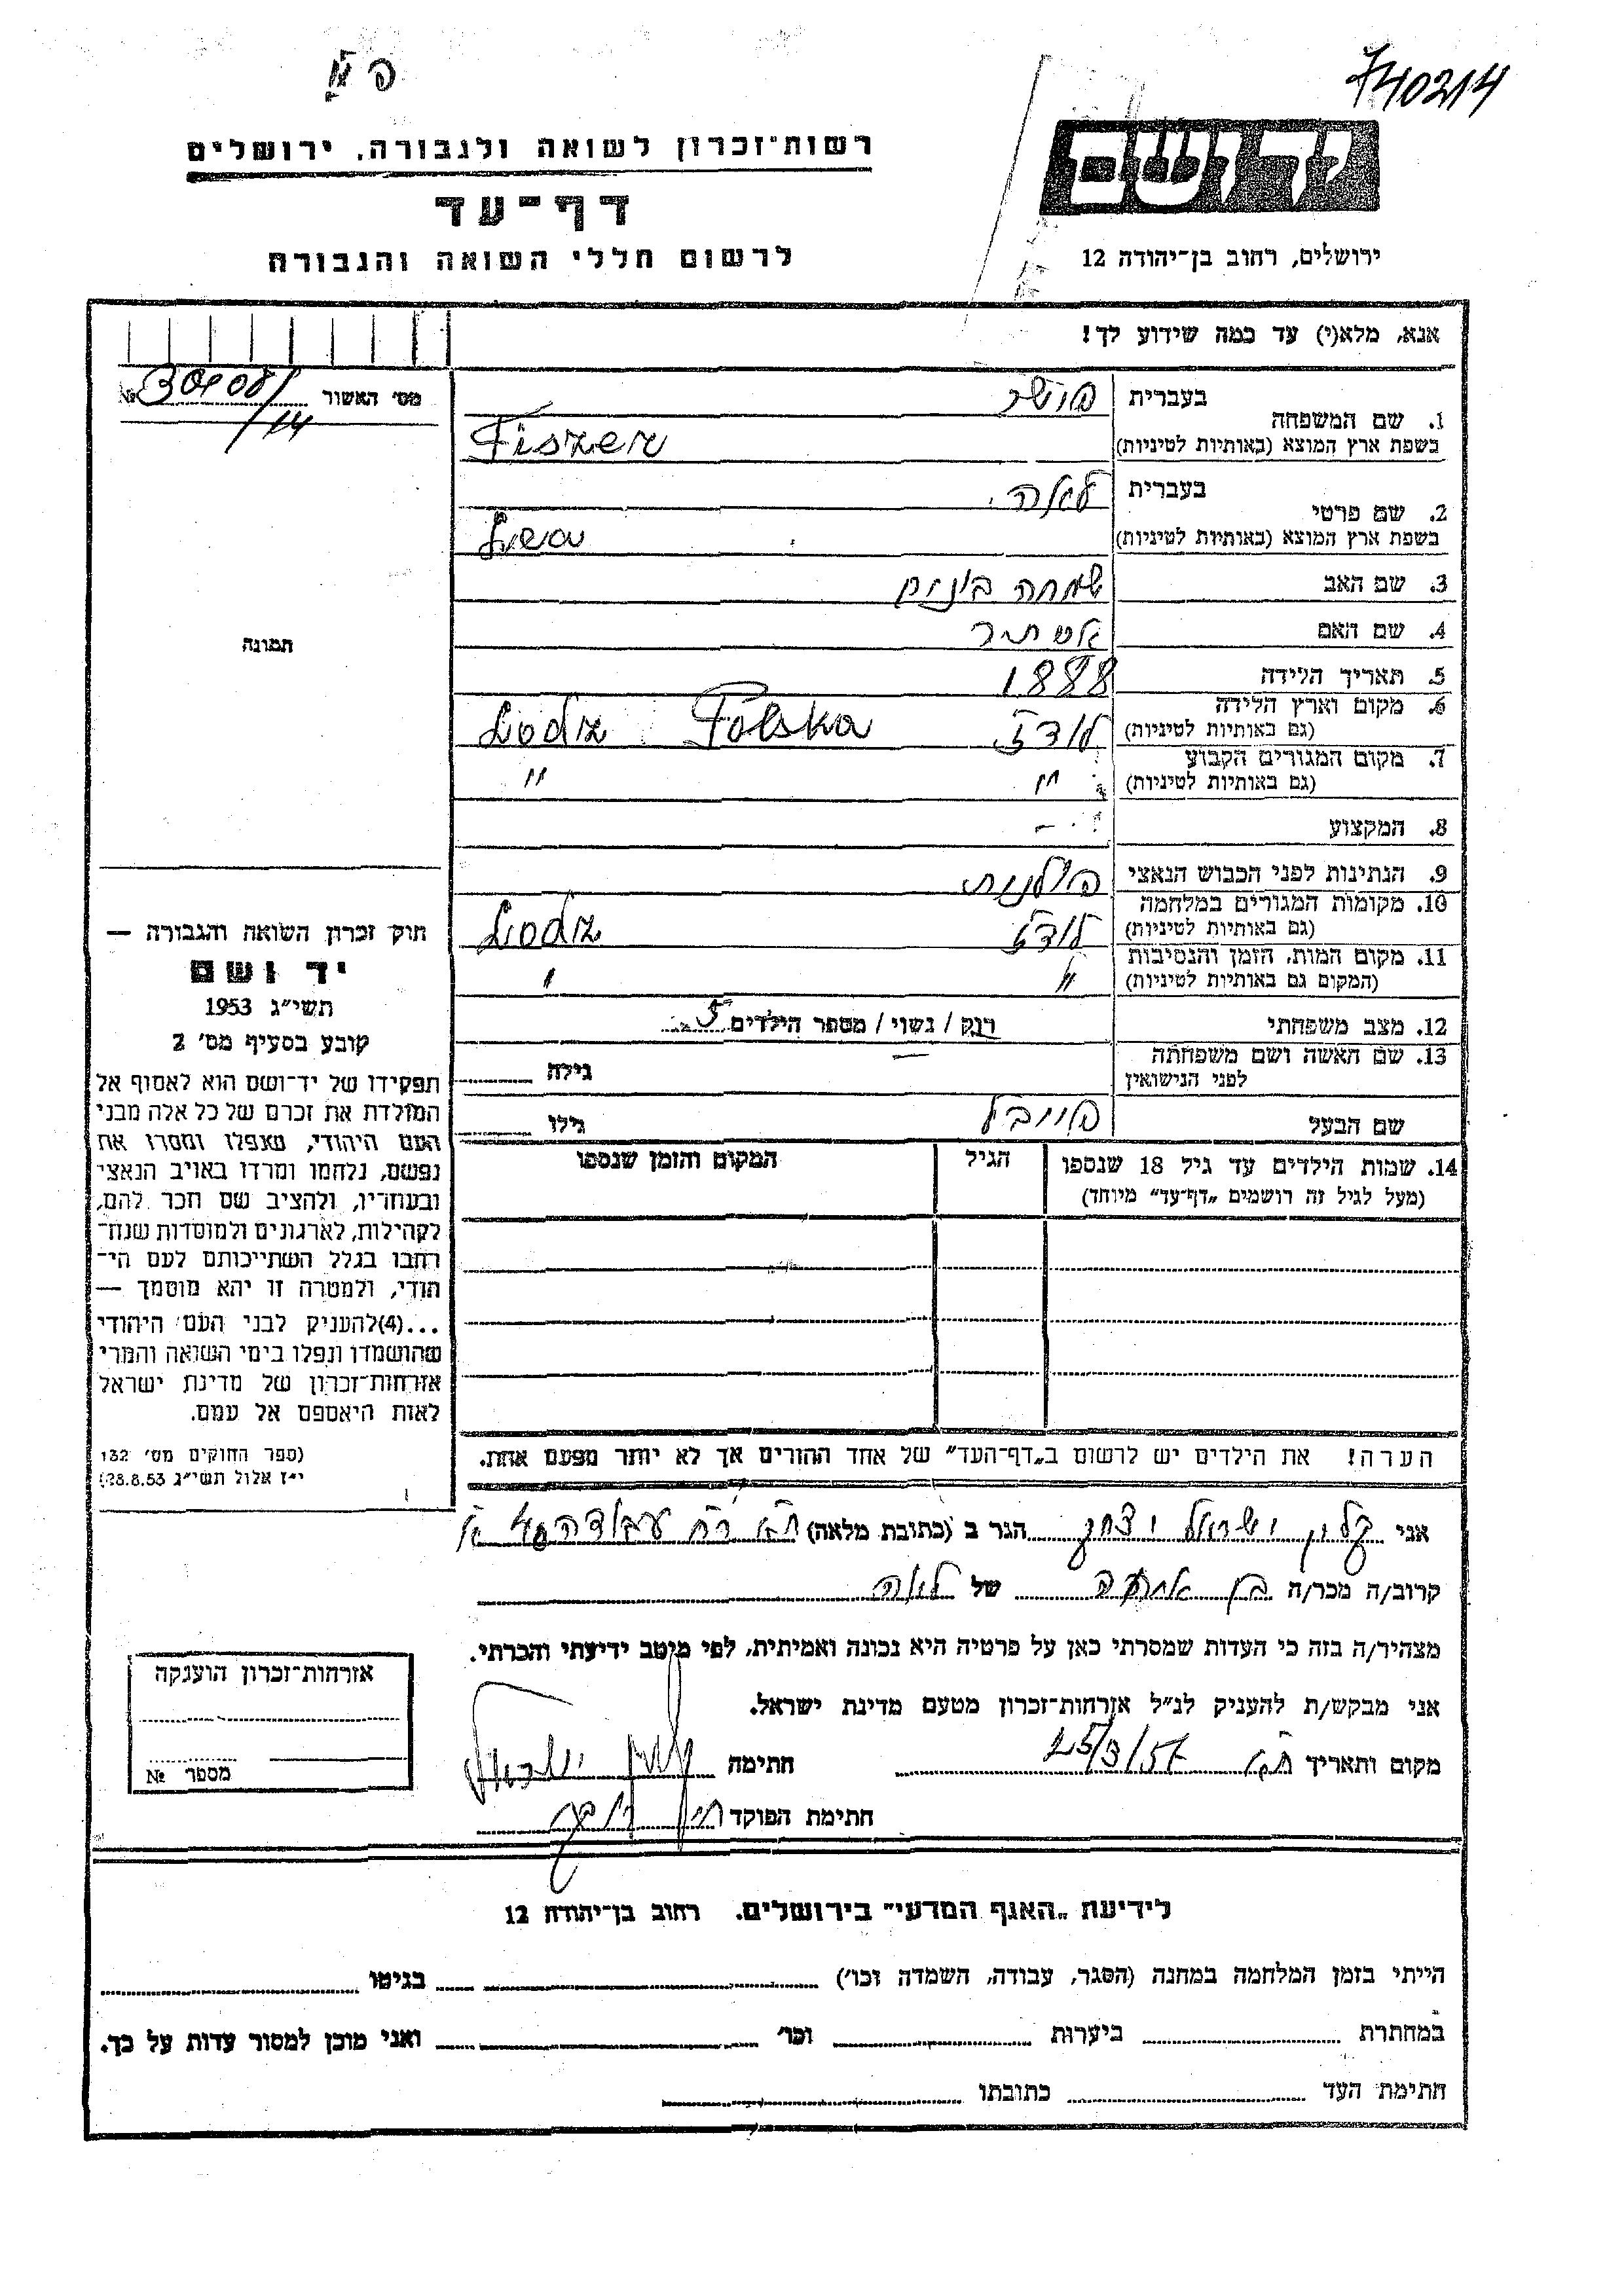 740214
פ
רשות־זכרון לשואה ולגבורה, ירושלים
דף־עד
לרשום חללי השואה והגבורה
יד ושם
ירושלים, רחוב בן־יהודה 12
אנא, מלא(י) עד כמה שידוע לך!
מס' האשור №
/14
תמונה
1. שם המשפחה
בעברית פישר
בשפת ארץ המוצא (באותיות לטיניות) Fiszer
2. שם פרטי
בעברית לאה
בשפת ארץ המוצא (באותיות לטיניות) Lea
3. שם האב שמחה בינום
4. שם האם אסתר
5. תאריך הלידה 1888
6. מקום וארץ הלידה (גם באותיות לטיניות) לודז Polska Lodz
7. מקום המגורים הקבוע (גם באותיות לטיניות) " "
8. המקצוע —
9. הנתינות לפני הכבוש הנאצי פולנית
10. מקומות המגורים במלחמה (גם באותיות לטיניות) לודז Lodz
11. מקום המות, הזמן והנסיבות (המקום גם באותיות לטיניות) " "
12. מצב משפחתי רוק / נשוי / מספר הילדים 5
13. שם האשה ושם משפחתה לפני הנישואין — גילה
שם הבעל פייבל גילו
14. שמות הילדים עד גיל 18 שנספו (מעל לגיל זה רושמים „דף־עד" מיוחד)
הגיל
המקום והזמן שנספו
הערה! את הילדים יש לרשום ב„דף־העד" של אחד ההורים אך לא יותר מפעם אחת.
חוק זכרון השואה והגבורה —
יד ושם
תשי"ג 1953
קובע בסעיף מס' 2
תפקידו של יד־ושם הוא לאסוף אל
המולדת את זכרם של כל אלה מבני
העם היהודי, שנפלו ומסרו את
נפשם, נלחמו ומרדו באויב הנאצי
ובעוזריו, ולהציב שם וזכר להם,
לקהילות, לארגונים ולמוסדות שנח־
רבו בגלל השתייכותם לעם הי־
הודי, ולמטרה זו יהא מוסמך —
...(4)להעניק לבני העם היהודי
שהושמדו ונפלו בימי השואה והמרי
אזרחות־זכרון של מדינת ישראל
לאות היאספם אל עמם.
(ספר החוקים מס' 132
י"ז אלול תשי"ג 28.8.53)
אני קלון ישראל יצחק הגר ב (כתובת מלאה) ת"א רח עבודה
קרוב/ה מכר/ה בן של לאה
מצהיר/ה בזה כי העדות שמסרתי כאן על פרטיה היא נכונה ואמיתית, לפי מיטב ידיעתי והכרתי.
אני מבקש/ת להעניק לנ"ל אזרחות־זכרון מטעם מדינת ישראל.
מקום ותאריך ת"א 25/3/57 חתימה
חתימת הפוקד
אזרחות־זכרון הוענקה
מספר №
לידיעת „האגף המדעי" בירושלים. רחוב בן־יהודה 12
הייתי בזמן המלחמה במחנה (הסגר, עבודה, השמדה וכו') בגיטו
במחתרת ביערות וכו' ואני מוכן למסור עדות על כך.
חתימת העד כתובתו